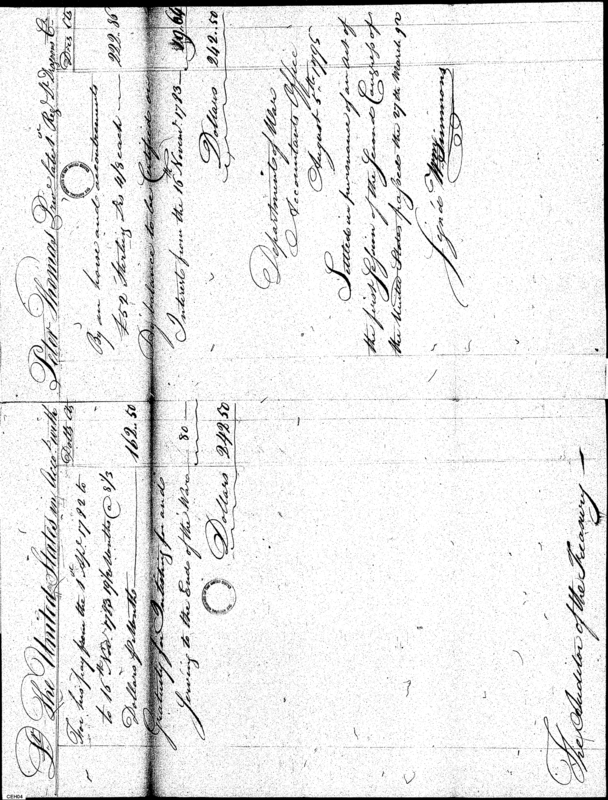 Dr The United States in Acct with
Dolls Cts
For his pay from the 1st Apl 1782 to
to 15th Novr 1783 19½ Months @ 8⅓
Dollars p Month 162..50
Gratuity for Inlisting for and
Serving to the End of the War 80
Dollars 242..50
Peter Thomas Private late 1st Reg Lt Dragoons Cr
Dlrs Cts
By an horse and accoutrements
£52 Sterling Drs 4/8 each 222..86
By balance to be Certified on
Interest from the 16 Novemr 1783 19..64
Dollars 242..50
Department of War
Accountants Office
August 5th 1795
Settled in pursuance of an Act of
the first Session of the Second Congress of
the United States passed the 27th March 92
Sign'd Wm Simmons
The Auditor of the Treasury
CEH04